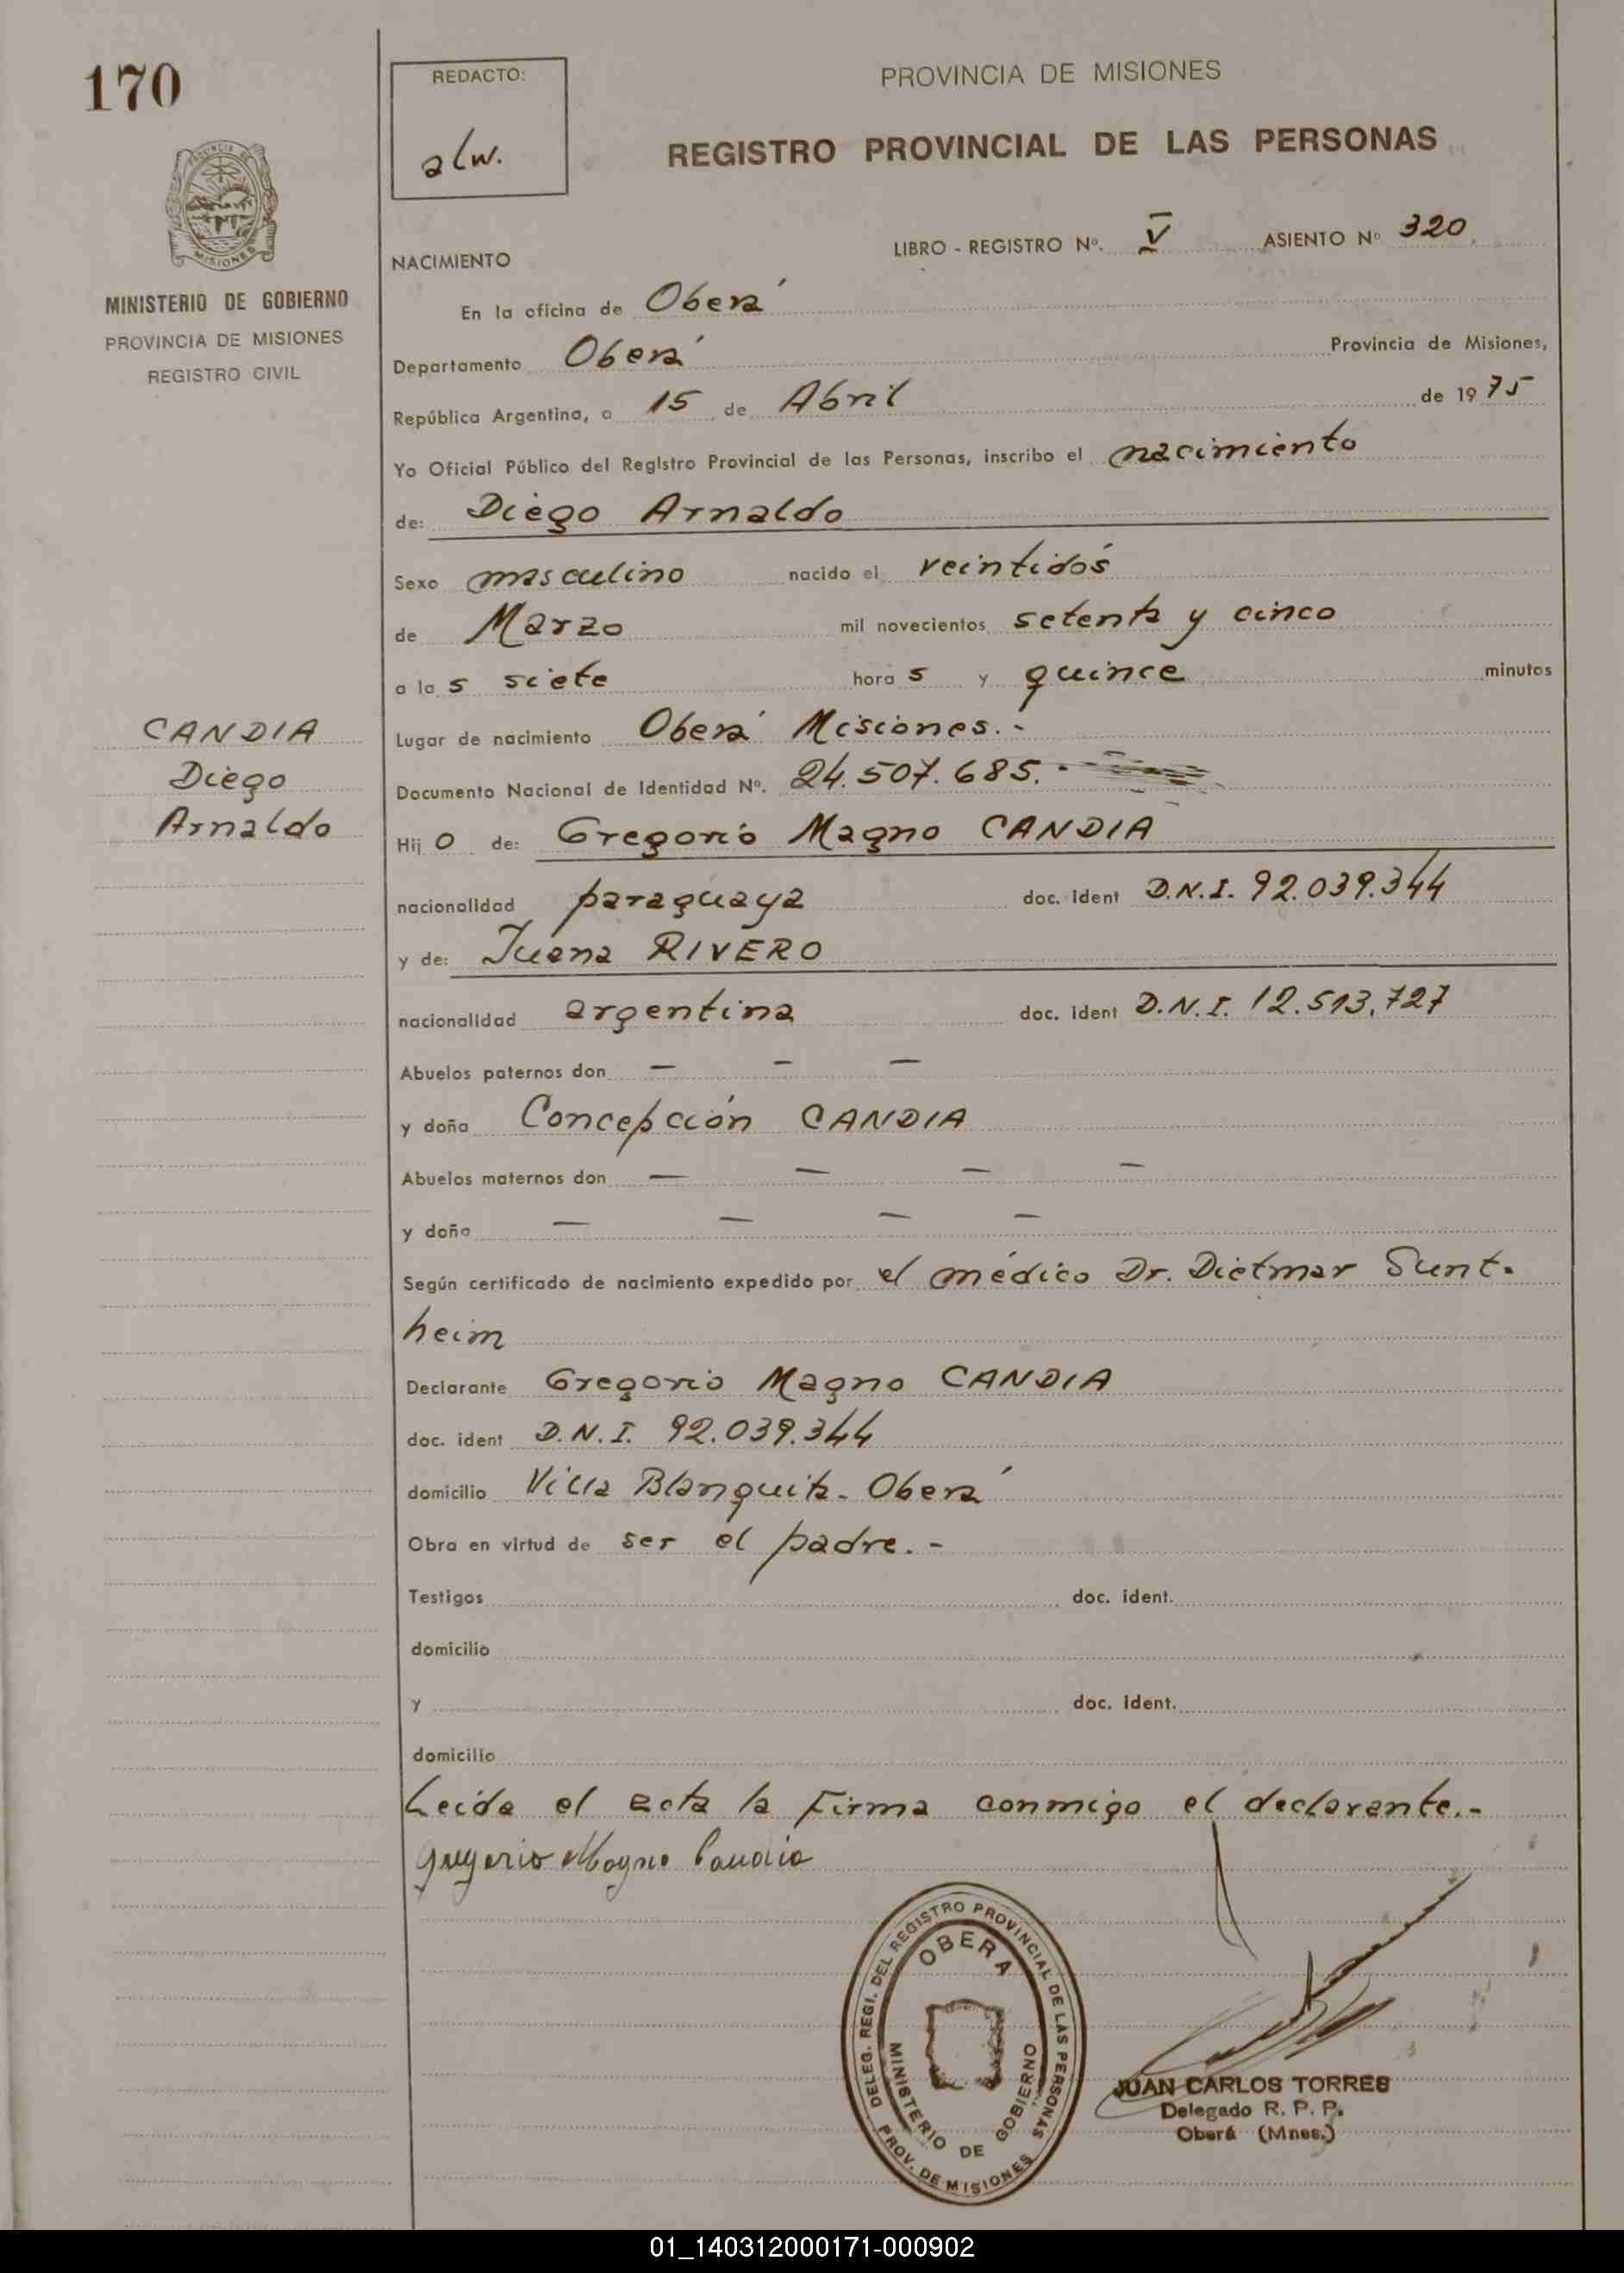 170
REDACTO:
alw.
PROVINCIA DE MISIONES
REGISTRO PROVINCIAL DE LAS PERSONAS
PROVINCIA DE
MISIONES
MINISTERIO DE GOBIERNO
PROVINCIA DE MISIONES
REGISTRO CIVIL
LIBRO - REGISTRO Nº. V ASIENTO Nº 320
NACIMIENTO
En la oficina de Oberá
Departamento Oberá Provincia de Misiones,
República Argentina, a 15 de Abril de 1975
Yo Oficial Público del Registro Provincial de las Personas, inscribo el nacimiento
de: Diego Arnaldo
Sexo masculino nacido el veintidós
de Marzo mil novecientos setenta y cinco
a las siete horas y quince minutos
CANDIA
Diego
Arnaldo
Lugar de nacimiento Oberá Misiones.-
Documento Nacional de Identidad Nº. 24.507.685.-
Hijo de: Gregorio Magno CANDIA
nacionalidad paraguaya doc. ident D.N.I. 92.039.344
y de: Juana RIVERO
nacionalidad argentina doc. ident D.N.I. 12.513.727
Abuelos paternos don — — —
y doña Concepción CANDIA
Abuelos maternos don — — — —
y doña — — — —
Según certificado de nacimiento expedido por el médico Dr. Dietmar Sunt-
heim
Declarante Gregorio Magno CANDIA
doc. ident D.N.I. 92.039.344
domicilio Villa Blanquita - Oberá
Obra en virtud de ser el padre.-
Testigos doc. ident.
domicilio
y doc. ident.
domicilio
Leída el acta la firma conmigo el declarante.-
Gregorio Magno Candia
DELEG. REGI. DEL REGISTRO PROVINCIAL DE LAS PERSONAS
OBERA
MINISTERIO DE GOBIERNO
PROV. DE MISIONES
JUAN CARLOS TORRES
Delegado R. P. P.
Oberá (Mnes.)
01_140312000171-000902